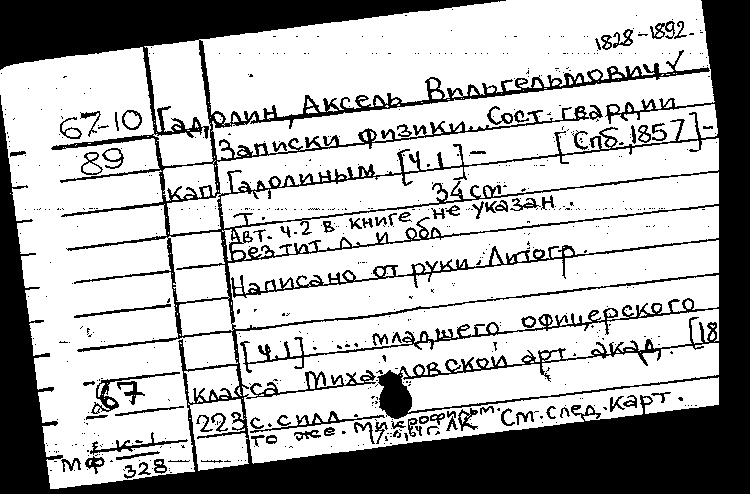 1828-1892
67-10 Гадолин, Аксель Вильгельмович ✓
89 Записки физики... Сост. гвардии
кап. Гадолиным. [Ч.1] – [Спб., 1857] –
34 cm.
Т.
Авт. ч.2 в книге не указан.
Без тит. л. и обл
Написано от руки. Литогр.
[ч.1]. ... младшего офицерского
класса Михайловской арт. акад. [18
67
223 с. силл.
То же. Микрофильм.
ЛК См. след. карт.
мф. К-1
328